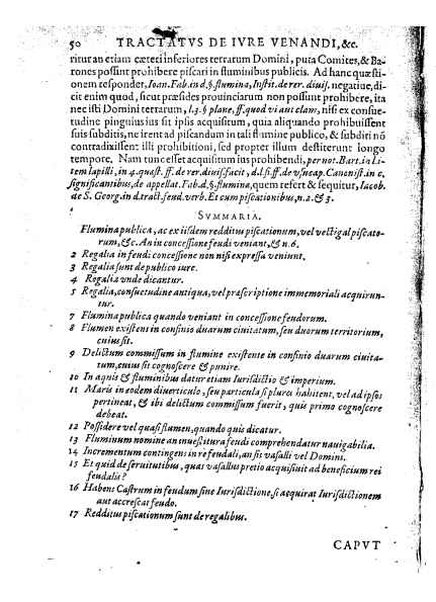 50 TRACTATVS DE IVRE VENANDI, &c.
ritur an etiam cæteri inferiores terrarum Domini, puta Comites, & Ba-
rones possint prohibere piscari in fluminibus publicis. Ad hanc quæsti-
onem respondet, Ioan. Fab. in d. §. flumina, Instit. de rer. diuis. negatiue, di
cit enim quod, sicut præsides prouinciarum non possunt prohibere, ita
nec isti Domini terrarum, l. 3. § plane, ff. quod vi aut clam, nisi ex consue-
tudine pinguius ius sit ipsis acquisitum, quia aliquando prohibuissent
suis subditis, ne irent ad piscandum in tali flumine publico, & subditi nō
contradixissent illi prohibitioni, sed propter illum destiterunt longo
tempore. Nam tunc esset acquisitum ius prohibendi, per not. Bart. in l. i-
tem lapilli, in 4. quæst. ff. de rer. diuis. facit, d. l. si. ff. de vsucap. Canonist. in c.
significantibus, de appellat. Fab. d. §. flumina, quem refert & sequitur, Iacob.
de S. Georg. in d. tract. feud. verb. Et cum piscationibus, n. 2. & 3.
SVMMARIA.
Flumina publica, ac ex iisdem redditus piscationum, vel vectigal piscato-
rum, &c. An in concessione feudi veniant, & n. 6.
2 Regalia in feudi concessione non nisi expressa veniunt.
3 Regalia sunt de publico iure.
4 Regalia vnde dicantur.
5 Regalia, consuetudine antiqua, vel præscriptione immemoriali acquirun-
tur.
7 Flumina publica quando veniant in concessione feudorum.
8 Flumen existens in confinio duarum ciuitatum, seu duorum territorium,
cuius sit.
9 Delictum commissum in flumine existente in confinio duarum ciuita-
tum, cuius sit cognoscere & punire.
10 In aquis & fluminibus datur etiam Iurisdictio & imperium.
11 Maris in eodem diuerticulo, seu particula si plures habitent, vel ad ipsos
pertineat, & ibi delictum commissum fuerit, quis primo cognoscere
debeat.
12 Possidere vel quasi flumen, quando quis dicatur.
13 Fluminum nomine an inuestitura feudi comprehendatur nauigabilia.
14 Incrementum contingens in re feudali, an sit vasalli vel Domini.
15 Et quid de seruitutibus, quas vasallus pretio acquisiuit ad beneficium rei
feudalis?
16 Habens Castrum in feudum sine Iurisdictione, si acquirat Iurisdictionem
aut accrescat feudo.
17 Redditus piscationum sunt de regalibus.
CAPVT